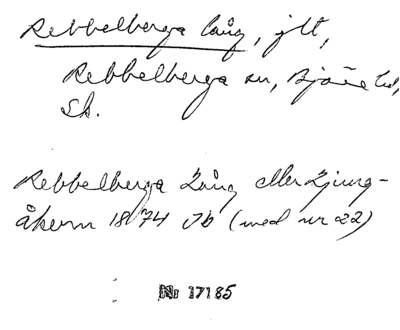 Rebbelberga lång, jltt,
Rebbelberga sn, Bjäre hd,
Sk.
Rebbelberga Lång eller Ljung-
åkern 1874 Jb (med nr 22)
Nr 17185